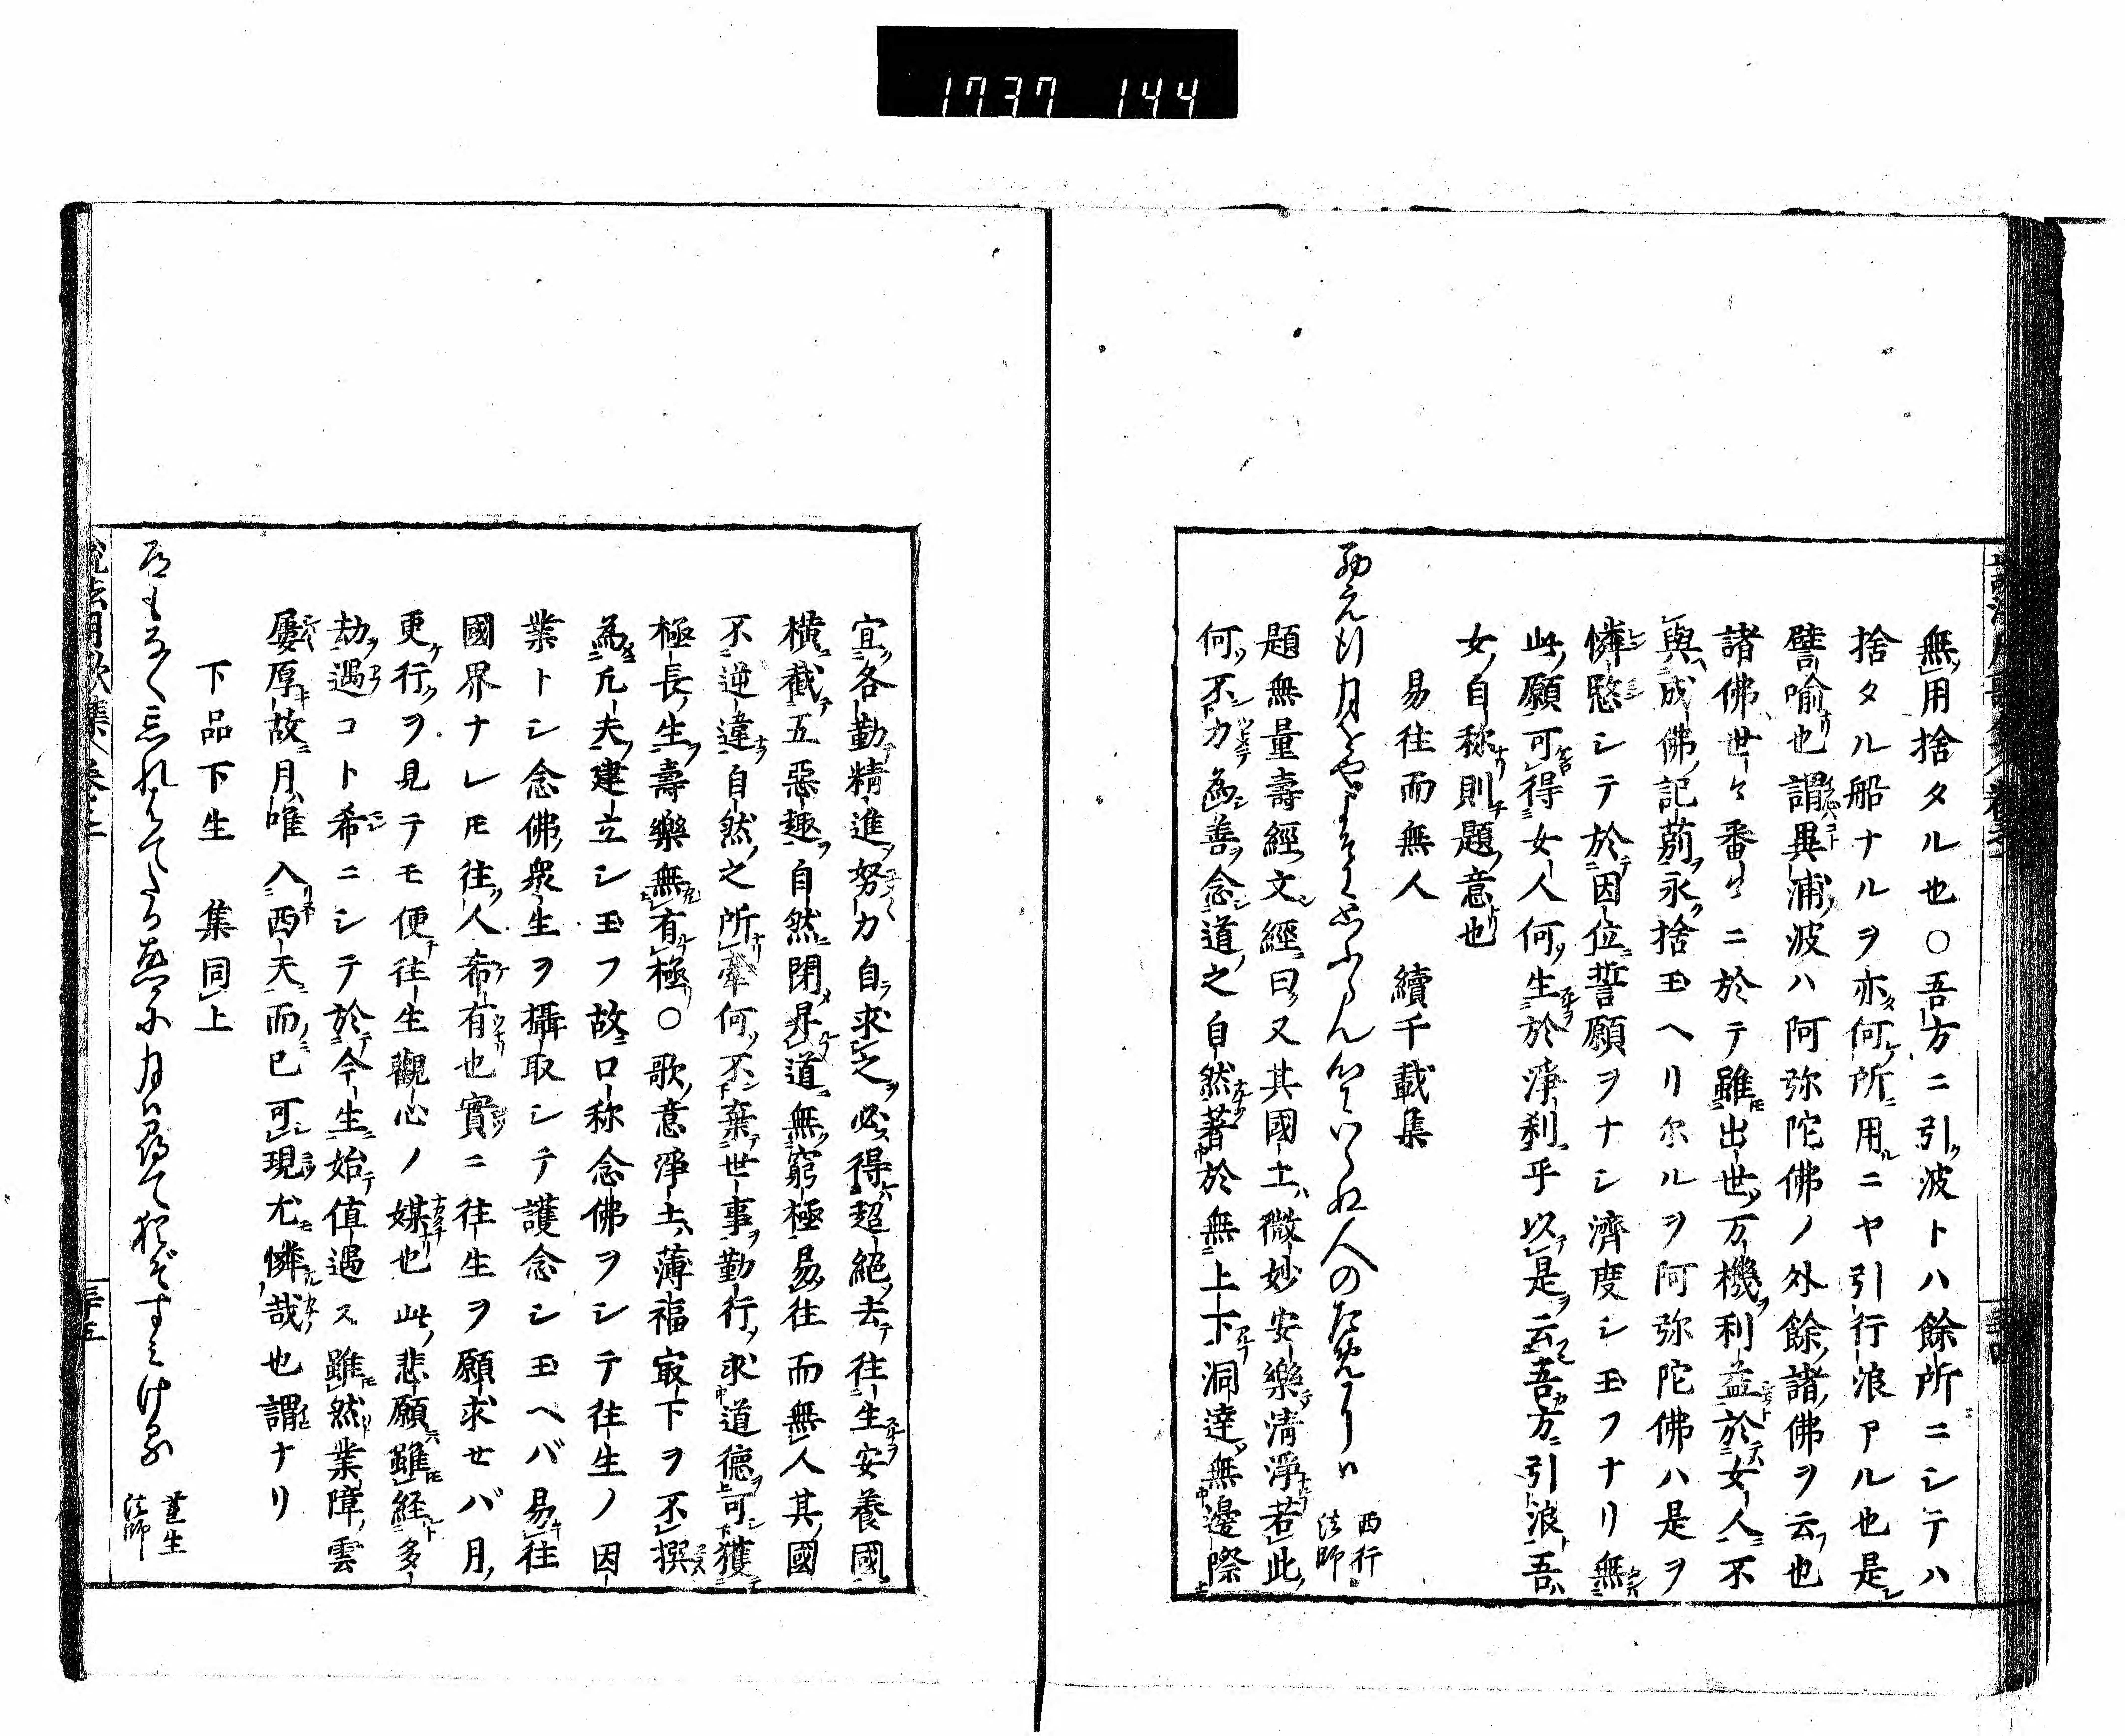 1737 144
無用捨タル也○吾方ニ引波トハ餘所ニシテハ
捨タル船ナルヲ亦何所用ニヤ引行浪アル也是
譬喩也謂異浦波ハ阿弥陀佛ノ外餘諸佛ヲ云也
諸佛世々番々ニ於テ雖出世万機利益於女人不
與成佛記莂永捨玉ヘリ尓ルヲ阿弥陀佛ハ是ヲ
憐愍シテ於因位誓願ヲナシ濟度シ玉フナリ無
此願可得女人何生於淨刹乎以是云吾方引浪吾
女自称則題意也
易往而無人 續千載集
西へ行月をやよそに思ふらん心にいらぬ人のためには 西行法師
題無量壽經文經曰又其國土微妙安樂清淨若此
何不力為善念道之自然著於無上下洞達無邊際
宜各勤精進努力自求之必得超絕去往生安養國
横截五惡趣自然閉昇道無窮極易往而無人其國
不逆違自然之所牽何不棄世事勤行求道德可獲
極長生壽樂無有極○歌意淨土薄福㝡下ヲ不撰
為凡夫建立シ玉フ故口称念佛ヲシテ往生ノ因
業トシ念佛衆生ヲ攝取シテ護念シ玉ヘバ易往
國界ナレ𪜈往人希有也實ニ往生ヲ願求せバ月
更行ヲ見テモ便往生觀心ノ媒也此悲願雖経多
劫遇コト希ニシテ於今生始值遇ス雖然業障雲
屢厚故月唯入西天而已可現尤憐哉也謂ナリ
下品下生 集同上
道もなく忘れはてたる故郷に月は尋て猶ぞすみける 蓮生法師